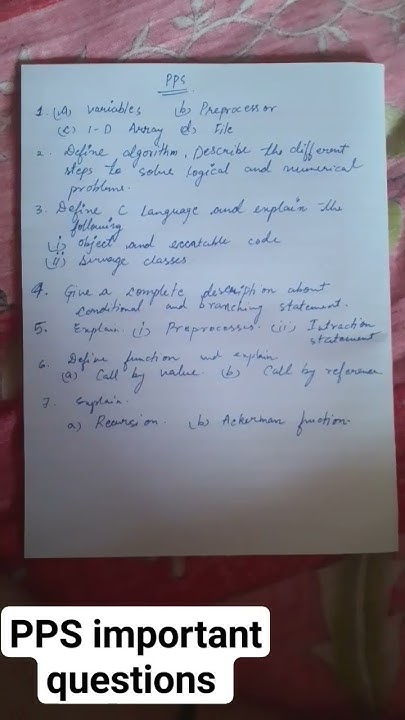 PPS
1. (A) Variables (b) Preprocessor
(c) 1-D Array (d) File
2. Define algorithm, Describe the different
steps to solve logical and numerical
problems.
3. Define C Language and explain the
following
(i) object and excatable code
(ii) Sorvage classes
4. Give a complete description about
conditional and branching statement.
5. Explain. (i) Preprocessis. (ii) Intraction
statement
6. Define function and explain.
(a) Call by value. (b) Call by reference
7. Explain.
a) Recursion. (b) Ackerman function.
PPS important
questions